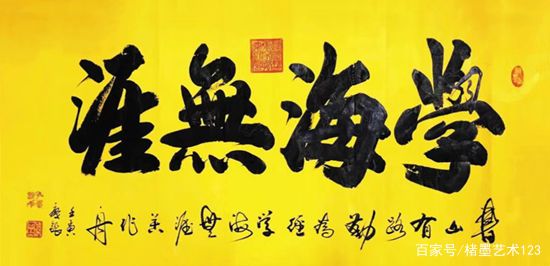 學海無涯
書山有路勤為徑學海無涯苦作舟
壬寅
百家号/楮墨艺术123